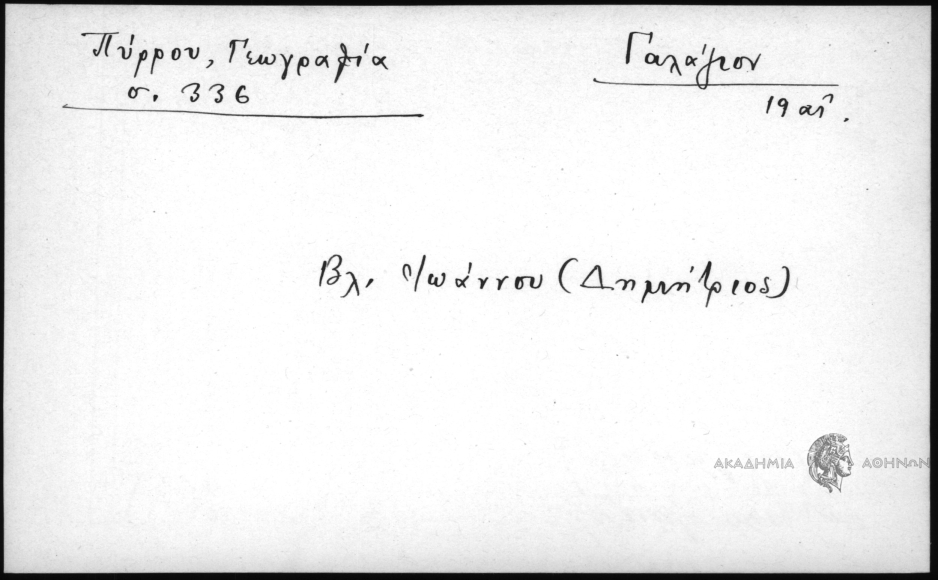 Πύρρου, Γεωγραφία
σ. 336
Γαλάζιον
19 αἰ.
Βλ. Ἰωάννου (Δημήτριος)
ΑΚΑΔΗΜΙΑ ΑΘΗΝΩΝ